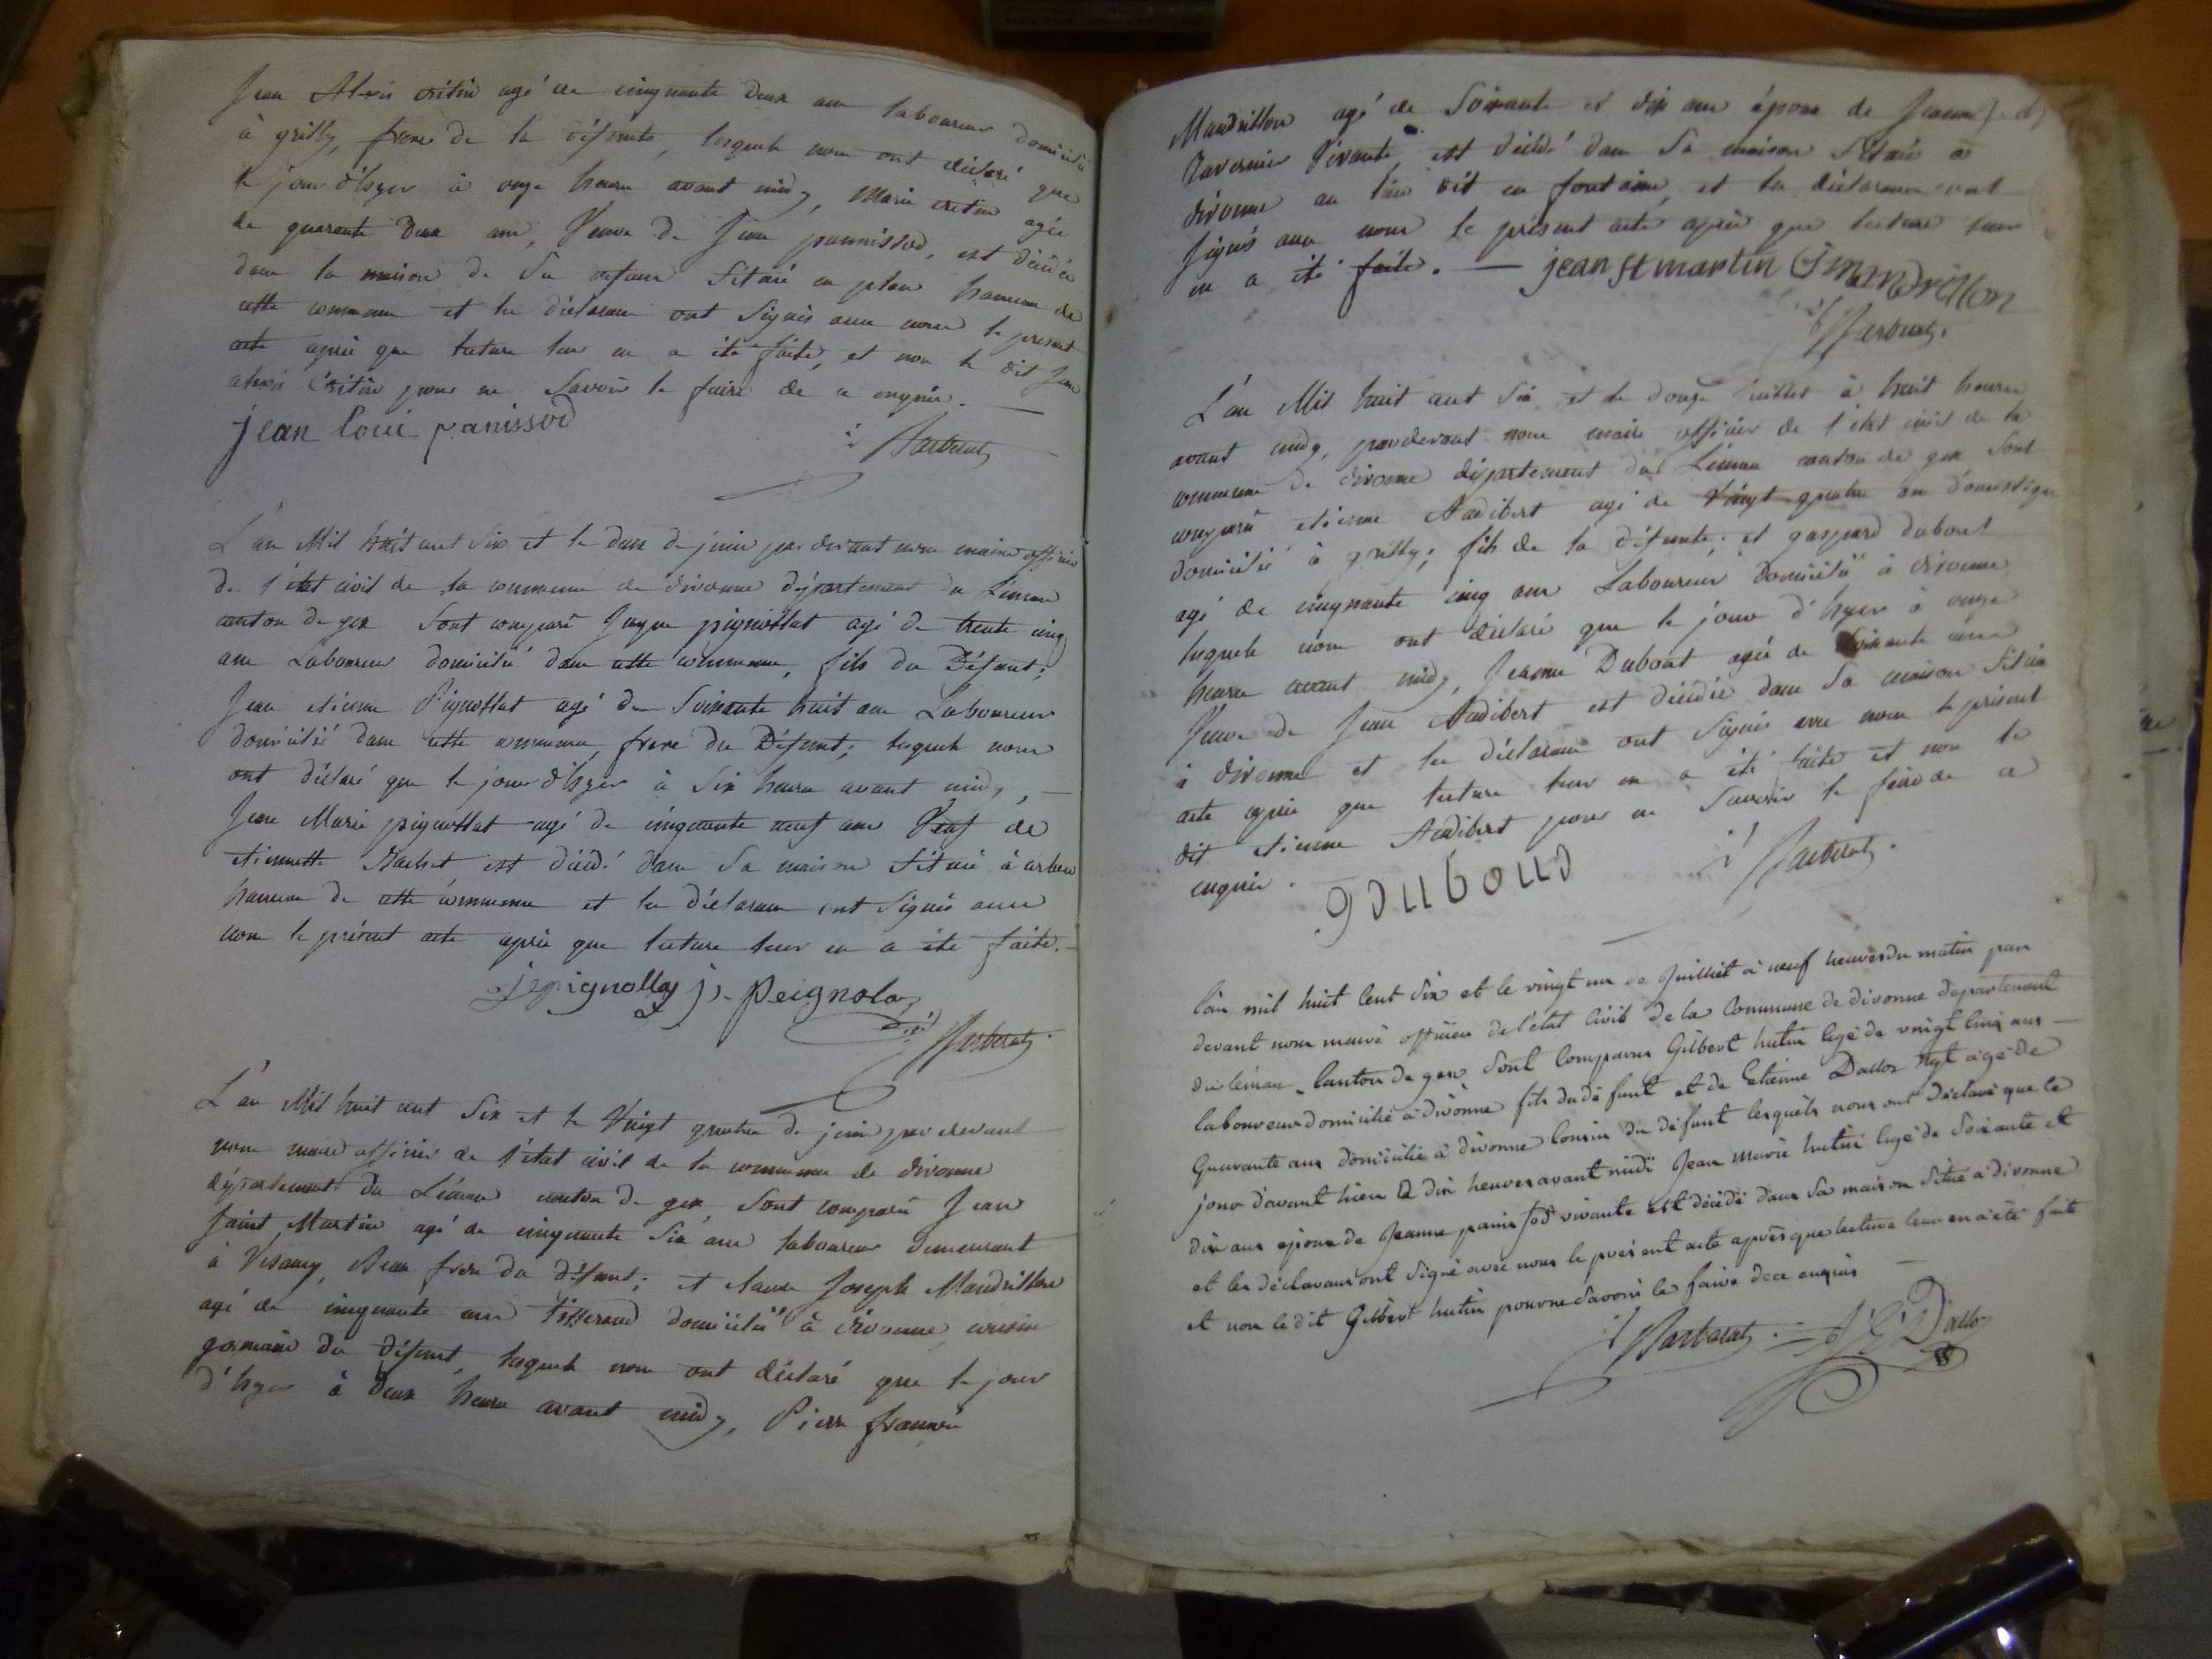 Jean Alexis crétin agé de cinquante deux ans laboureur domicilié
à grilly, frere de la défunte, lesquels nous ont déclaré que
le jour d'hyer à onze heures avant midy, Marie cretin agée
de quarante deux ans, Veuve de Jean pannissod, est décédée
dans la maison de Sa Située en plan hameau de
cette commune et les déclarans ont Signés avec nous le present
acte après que lecture leur en a été faite, et non le dit Jean
alexis Crétin pour ne Savoir le faire de ce enquis.
jean loui panissod
L'an Mil huit cent Six et le deux de juin par devant nous maire officier
de l'état civil de la commune de divonne département du Léman
canton de gex Sont comparu pignollat agé de trente cinq
ans Laboureur domicilié dans cette commune, fils du Défunt;
Jean etienne Pignollat agé de Soixante huit ans Laboureur
domicilié dans cette commune, frere du Défunt; lesquels nous
ont déclaré que le jour d'hyer à Six heures avant midy,
Jean Marie pignollat agé de cinquante neuf ans Veuf de
etiennette est décédé dans Sa maison Située à arbere
hameau de cette commune et les déclarans ont Signés avec
nous le présent acte après que lecture leur en a été faite.
L'an Mil huit cent Six et le Vingt quatre de juin par devant
nous maire officier de l'état civil de la commune de divonne
département du Léman canton de gex Sont comparu Jean
Saint Martin agé de cinquante Six ans laboureur demeurant
à Vesancy, Beau frere du défunt; et Joseph Mandrillon
agé de cinquante ans tisserand domicilié à divonne, cousin
germain du Défunt, lesquels nous ont déclaré que le jour
d'hyer à deux heures avant midy, Pierre francois
Mandrillon agé de Soixante et dix ans époux de Jeanne
tavernier Vivante, est décédé dans Sa maison Située à
divonne au lieu dit en fontaine, et les déclarans ont
Signés avec nous le présent acte après que lecture leur
en a été faite. — jean st martin mandrillon
L'an Mil huit cent Six et le douze juillet à huit heures
avant midy, pardevant nous maire officier de l'état civil de la
commune de divonne département du Léman canton de gex Sont
comparu etienne Audibert agé de Vingt quatre ans domestique
domicilié à grilly, fils de la défunte; et gaspard dubout
agé de cinquante cinq ans Laboureur domicilié à divonne,
lesquels nous ont déclaré que le jour d'hyer à onze
heures avant midy, Jeanne Dubout agée de Soixante
Veuve de Jean Audibert est décédée dans Sa maison Située
à divonne et les déclarans ont Signés avec nous le présent
acte après que lecture leur en a été faite et non le
dit etienne Audibert pour ne Savoir le faire de ce
enquis. g duboud
l'an mil huit Cent Six et le vingt un de Juilliet à neuf heures du matin par
devant nous maire officier de l'état Civil de la Commune de divonne departement
du léman Canton de gex Sont Comparus Gilbert hutin agé de vingt Cinq ans —
laboureur domicilié à divonne fils du défunt et de Etienne Dallos agé de
Quarante ans domicilié à divonne Cousin du défunt lesquels nous ont déclaré que le
jour d'avant hier à dix heures avant midi Jean marie hutin agé de Soixante et
dix ans epoux de Jeanne panissod vivante est décédé dans Sa maison Située à divonne
et les déclarans ont Signé avec nous le présent acte après que lecture leur en a été faite
et non le dit Gilbert hutin pour ne Savoir le faire de ce enquis